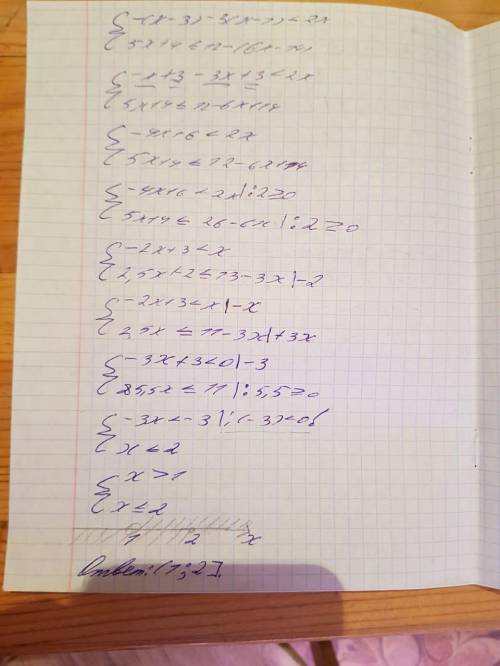 {-(x-3)-3(x-1)<2x
5x+4≤12-(6x-14)
{-x+3-3x+3<2x
5x+4≤12-6x+14
{-4x+6<2x
5x+4≤12-6x+14
{-4x+6<2x|:2≥0
5x+4≤26-6x|:2≥0
{-2x+3<x
2,5x+2≤13-3x|-2
{-2x+3<x|-x
2,5x≤11-3x|+3x
{-3x+3<0|-3
5,5x≤11|:5,5≥0
{-3x<-3|:(-3)<0!
x≤2
{x>1
x≤2
1 2 x
Ответ: (1;2].